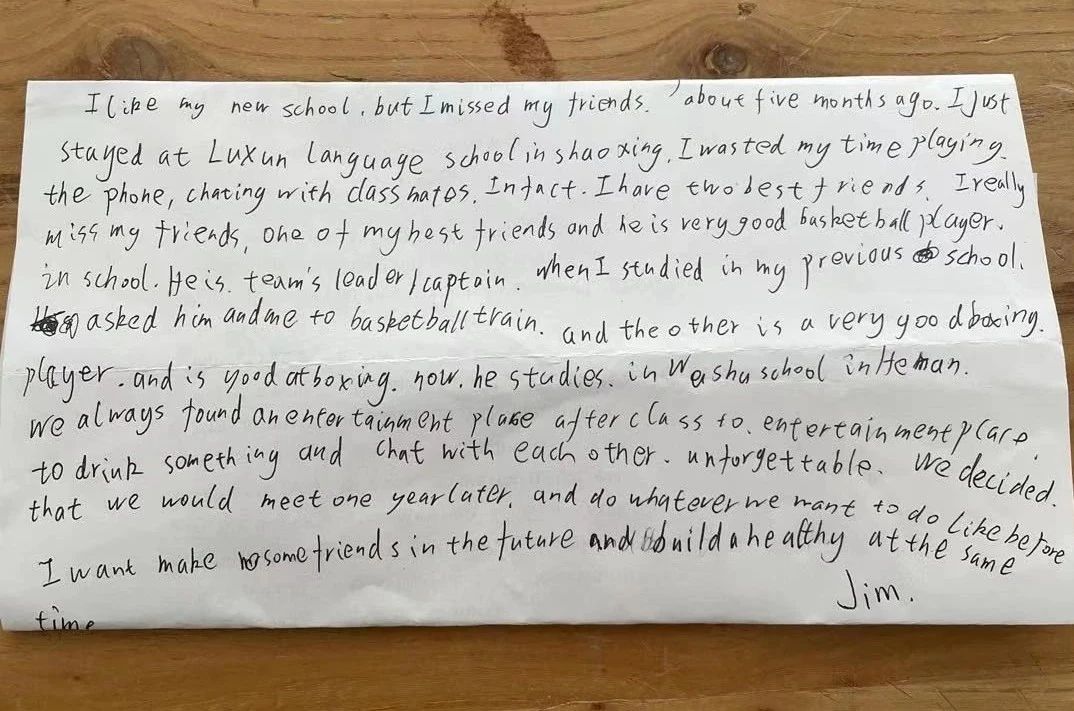 I like my new school, but I missed my friends. about five months ago. I just
stayed at Luxun language school in shaoxing, I wasted my time playing.
the phone, chating with classmates. Infact. I have two best friends. I really
miss my friends, one of my best friends and he is very good basketball player.
in school. He is. team's leader/captain. when I studied in my previous school.
asked him and me to basketball train. and the other is a very good boxing.
player. and is good at boxing. now. he studies. in Washu school in Heman.
we always found an entertainment place after class to. entertainment place
to drink something and chat with each other. unforgettable. We decided.
that we would meet one year later, and do whatever we want to do like before
I want make some friends in the future and build a healthy at the same
time
Jim.